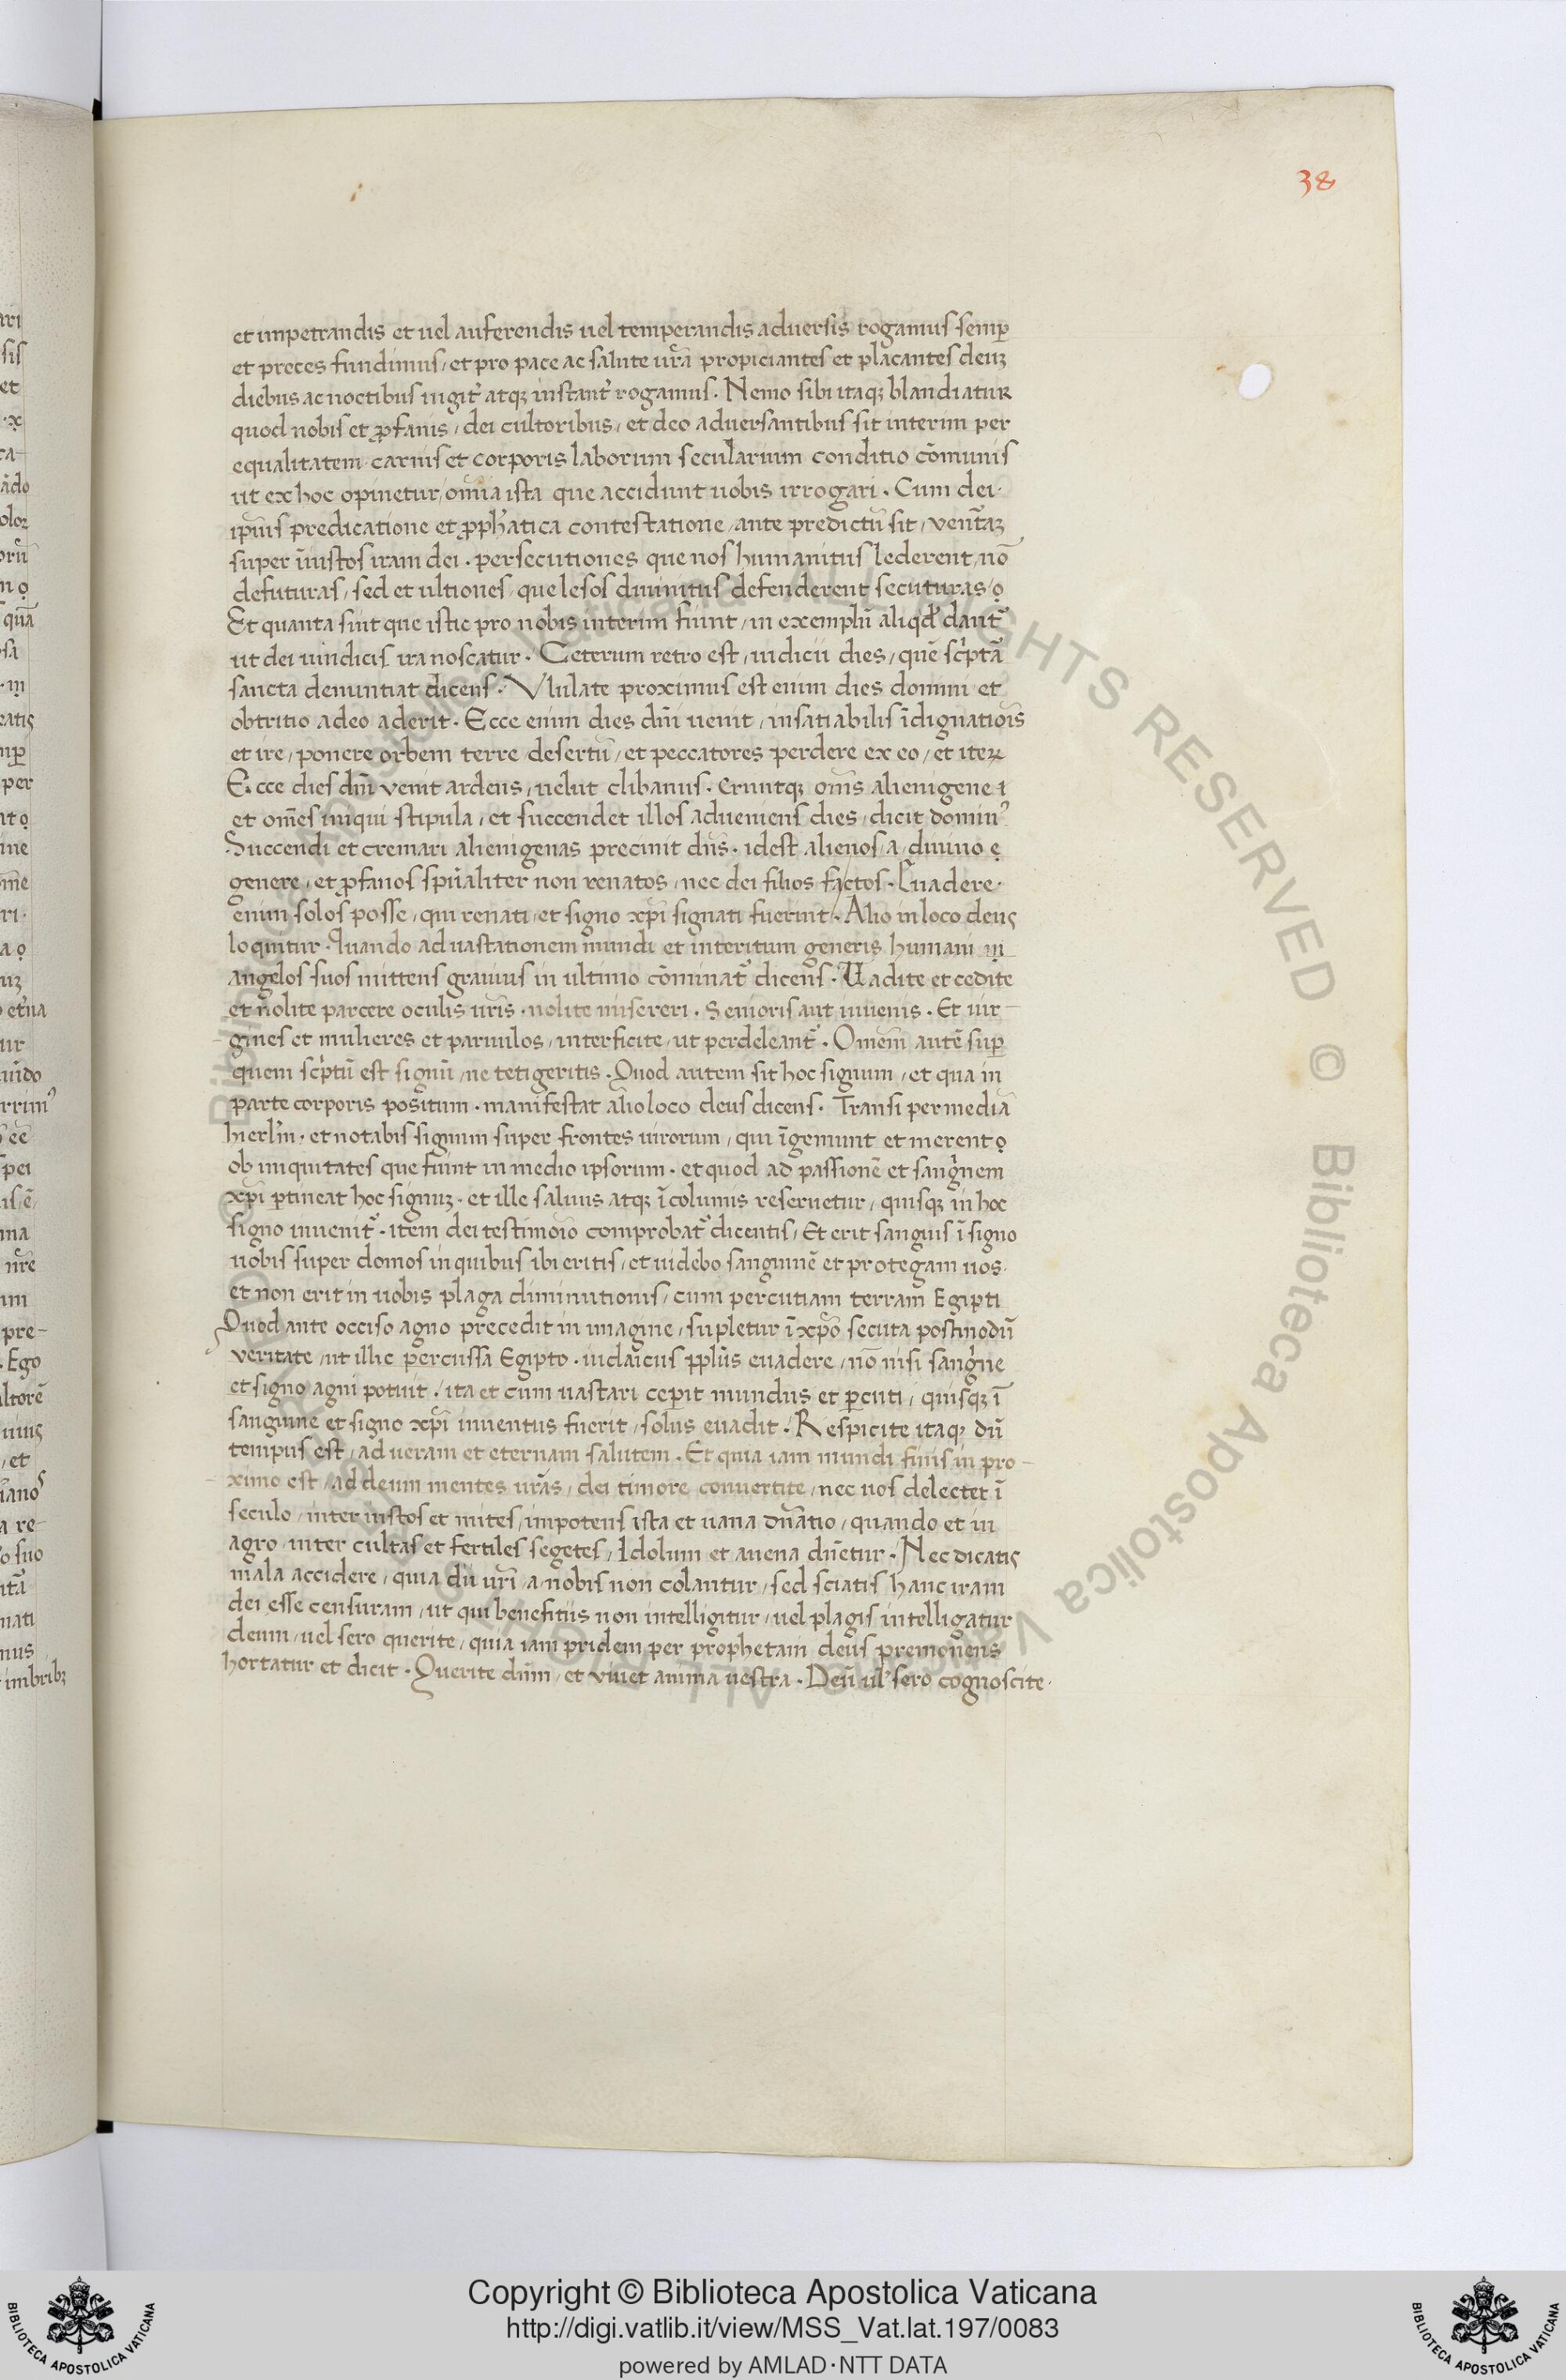 38
et impetrandis et uel auferendis uel temperandis aduersis rogamus semp̱
et preces fundimus / et pro pace ac salute ur̃a propiciantes et placantes deuꝫ
diebus ac noctibus iugit᷒ atqꝫ instant᷒ rogamus . Nemo sibi itaqꝫ blandiatur
quod nobis et ꝓfanis / dei cultoribus / et deo aduersantibus sit interim per
equalitatem carnis et corporis laborum secularium conditio cõmunis
ut ex hoc opinetur / om̃ia ista que accidunt uobis irrogari . Cum dei
ip̃ius predicatione et ꝓph̃atica contestatione / ante predictũ sit /
super iniustos iram dei . persecutiones que nos humanitus lederent / nõ
defuturas / sed et ultiones / que lesos diuinitus defenderent secuturas /
Et quanta sint que istic pro nobis interim fiunt / in exemplũ aliqd̃ dant᷒
ut dei uindicis ira noscatur . Ceterum retro est / iudicii dies / quẽ sc̃ptã
sancta denuntiat dicens . Vlulate proximus est enim dies domini et
obtritio a deo aderit . Ecce enim dies dñi uenit / insatiabilis ĩdignatiõis
et ire / ponere orbem terre desertũ / et peccatores perdere ex eo / et iteꝝ
Ecce dies dñi venit ardens / uelut clibanus . eruntqꝫ om̃s alienigene
et om̃es iniqui stipula / et succendet illos adueniens dies / dicit dominꝰ
Succendi et cremari alienigenas precinit dñs . idest alienos / a / diuino
genere / et ꝓfanos spũaliter non renatos / nec dei filios factos . Euadere
enim solos posse / qui renati / et signo xp̃i signati fuerint . Alio in loco deus
loquitur . Quando ad uastationem mundi et interitum generis humani
angelos suos mittens grauius in ultimo cõminat᷒ dicens . Uadite et cedite
et nolite parcere oculis ur̃is . nolite misereri . Senioris aut iuuenis . Et uir-
gines et mulieres et paruulos / interficite / ut perdeleant᷒ . Omẽm autẽ sup̱
quem sc̃ptũ est signũ / ne tetigeritis . Quod autem sit hoc signum / et qua in
parte corporis positum . manifestat alio loco deus dicens . Transi per mediã
hierl̃m . et notabis signum super frontes uirorum / qui ĩgemunt et merent
ob iniquitates que fiunt in medio ipsorum . et quod ad passionẽ et sang̃nem
xp̃i ꝑtineat hoc signuꝫ . et ille saluus atqꝫ ĩcolumis reseruetur / quisqꝫ in hoc
signo inuenit᷒ . item dei testimõio comprobat᷒ dicentis / Et erit sanguis ĩ signo
uobis super domos in quibus ibi eritis / et uidebo sanguinẽ et protegam uos .
et non erit in uobis plaga diminutionis / cum percutiam terram Egipti
Quod ante occiso agno precedit in imagine / supletur ĩ xp̃o secuta postmodũ
veritate / ut illic percussa Egipto . iudaicus pp̃lus euadere / nõ nisi sang̃ne
et signo agni potuit / ita et cum uastari ceperit mundus et ꝑcuti / quisqꝫ ĩ
sanguine et signo xp̃i inuentus fuerit / solus euadit . Respicite itaqꝫ dũ
tempus est / ad ueram et eternam salutem . Et quia iam mundi finis in pro-
ximo est / ad deum mentes ur̃as / dei timore conuertite / nec uos delectet ĩ
seculo / inter iustos et mites / impotens ista et uana dñatio / quando et in
agro / inter cultas et fertiles segetes / Idolum et auena dñetur . Nec dicatis
mala accidere / quia dii ur̃i / a / nobis non colantur / sed sciatis hanc iram
dei esse censuram / ut qui benefitiis non intelligitur / uel plagis intelligatur
deum / uel sero querite / quia iam pridem per prophetam deus premonens
hortatur et dicit . Querite dũm / et viuet anima uestra . Deũ ul᷒ sero cognoscite .
Biblioteca Apostolica Vaticana ALL RIGHTS RESERVED © Biblioteca Apostolica Vaticana
Copyright © Biblioteca Apostolica Vaticana
http://digi.vatlib.it/view/MSS_Vat.lat.197/0083
powered by AMLAD·NTT DATA
BIBLIOTECA APOSTOLICA VATICANA
BIBLIOTECA APOSTOLICA VATICANA